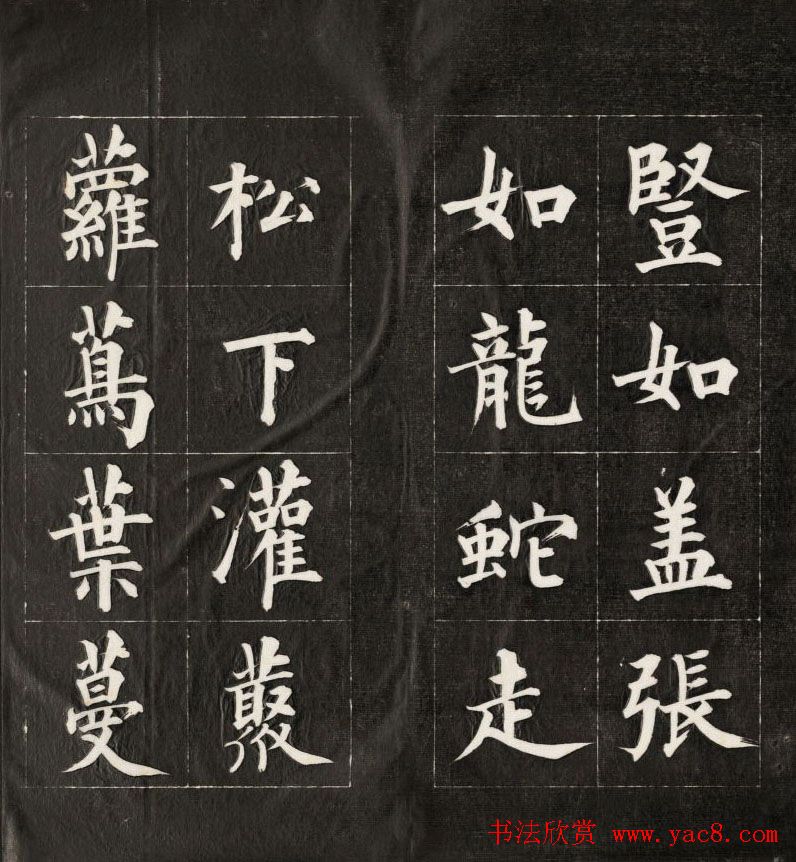 豎如盖張
如龍蛇走
松下灌藂
蘿蔦葉蔓
书法欣赏 www.yac8.com